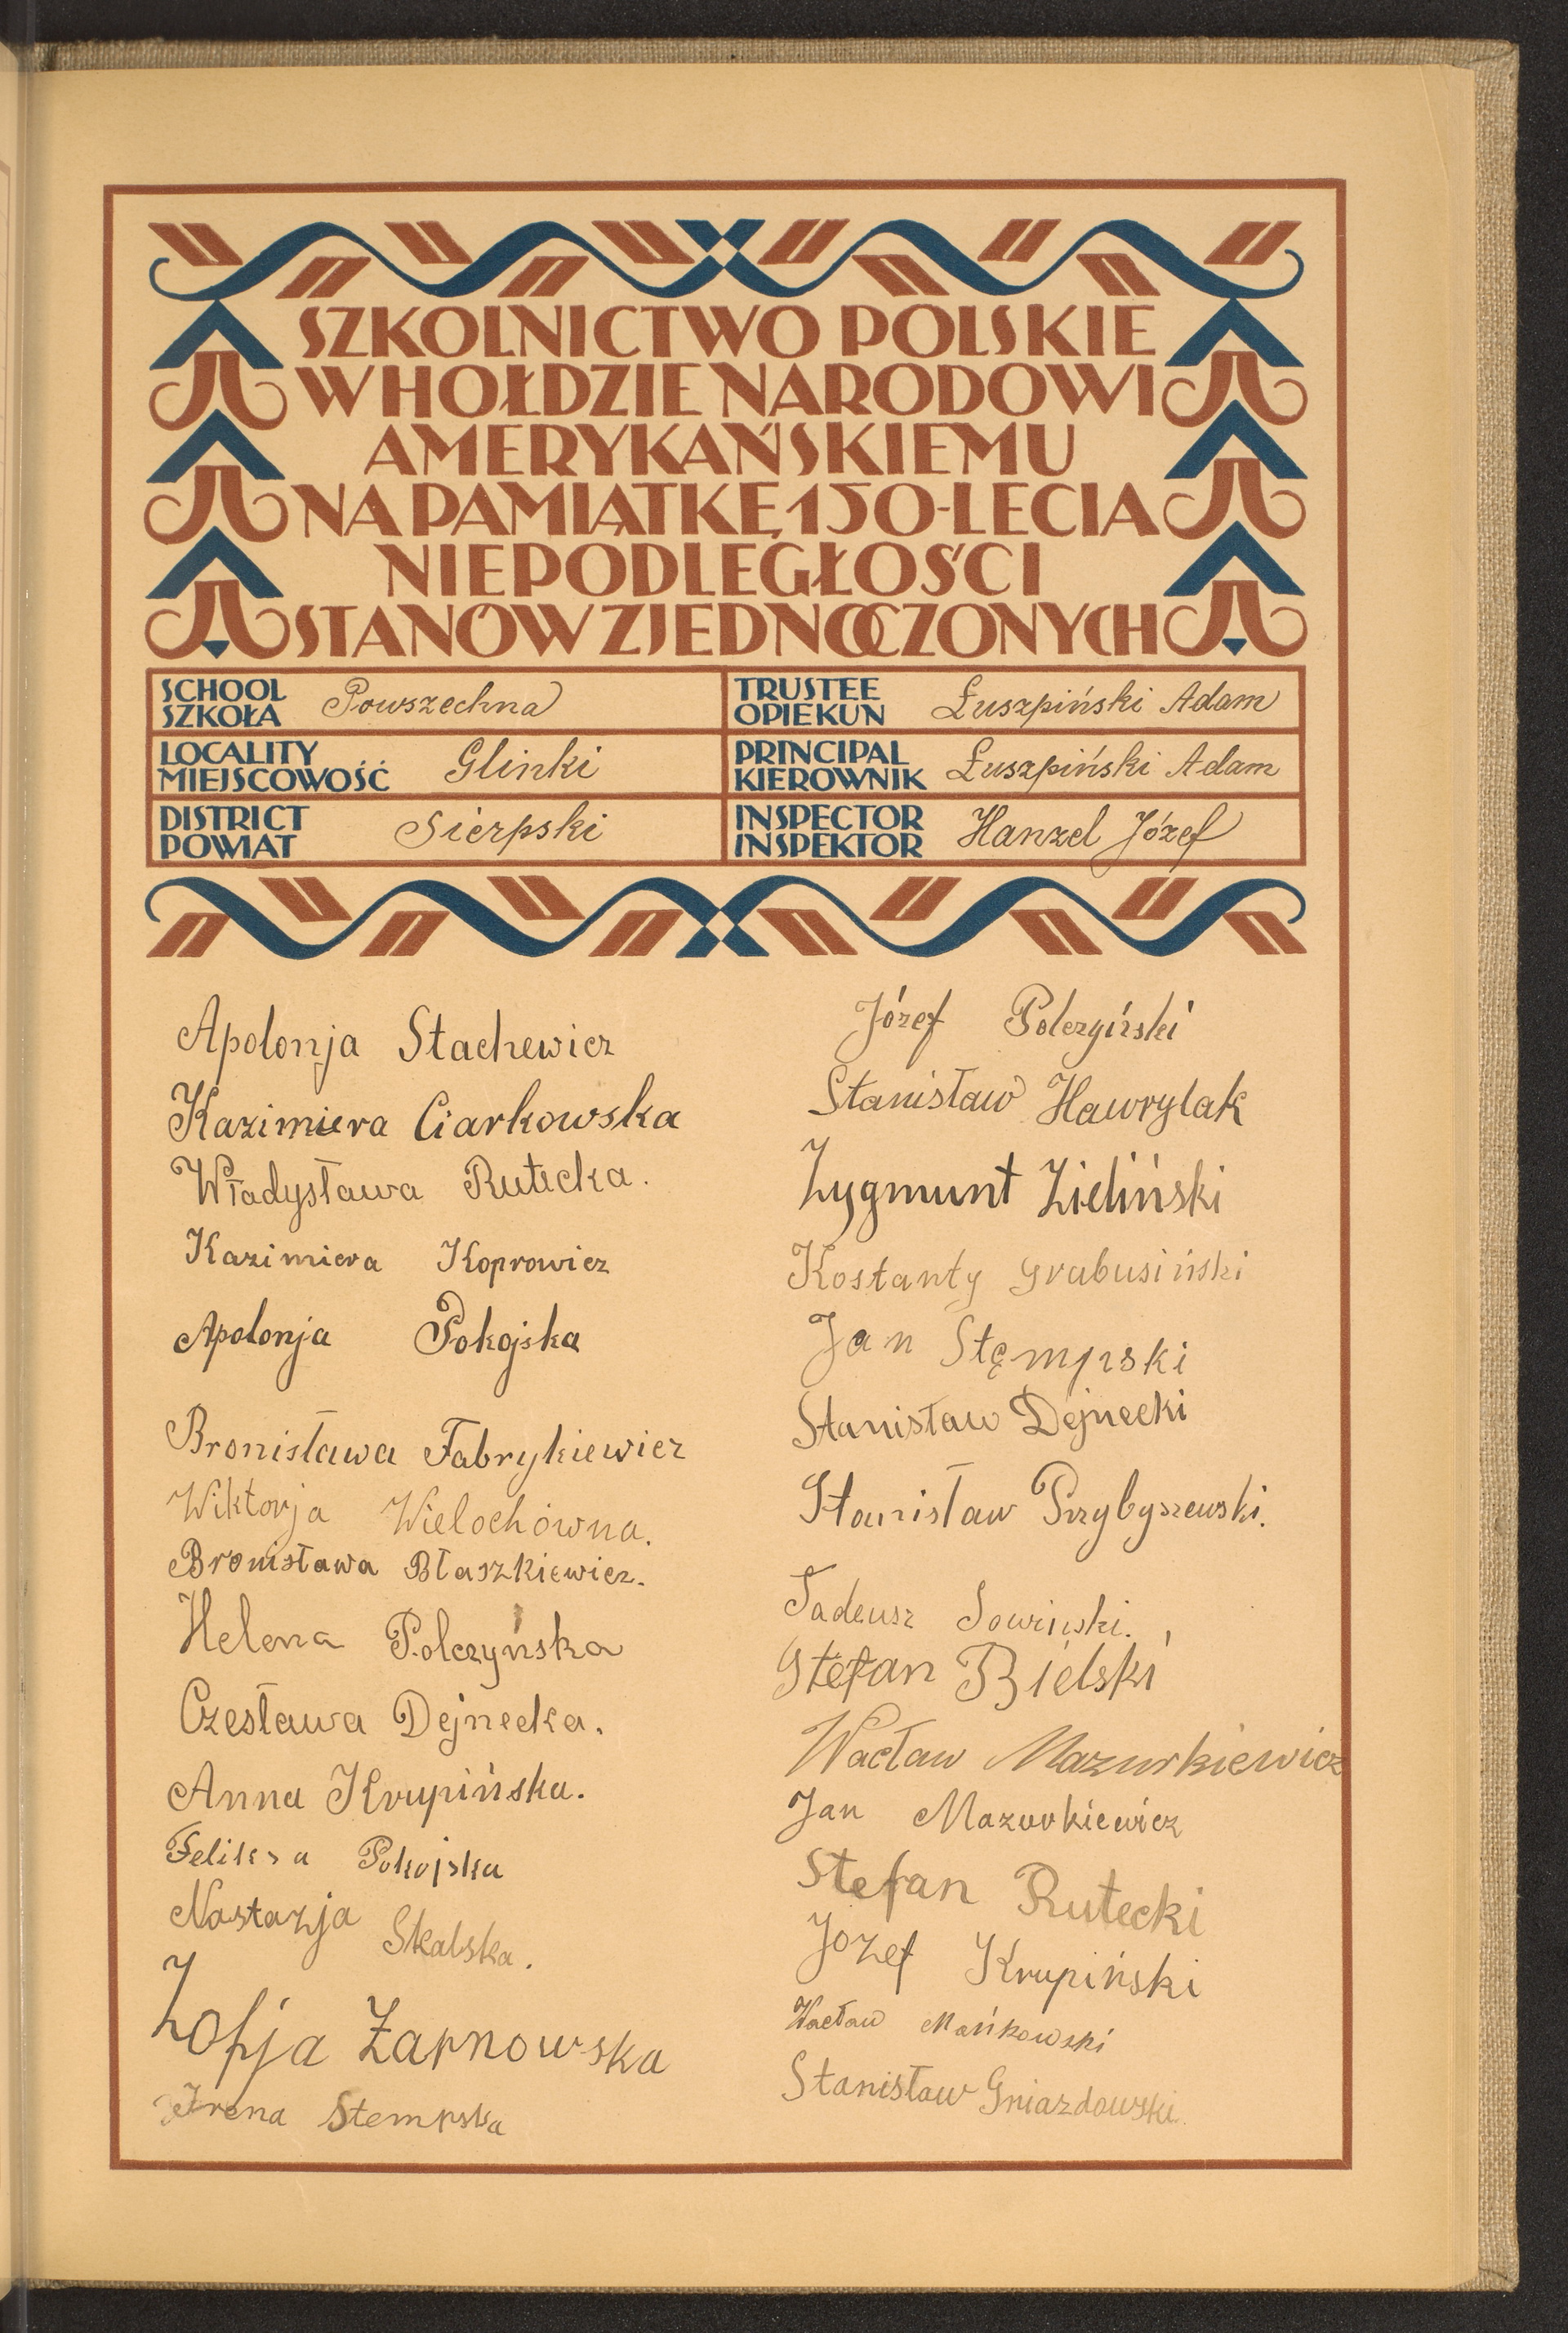 SZKOLNICTWO POLSKIE
W HOŁDZIE NARODOWI
AMERYKAŃSKIEMU
NA PAMIĄTKĘ 150-LECIA
NIEPODLEGŁOŚCI
STANÓW ZJEDNOCZONYCH
SCHOOL
SZKOŁA Powszechna
TRUSTEE
OPIEKUN Łuszpiński Adam
LOCALITY
MIEJSCOWOŚĆ Glinki
PRINCIPAL
KIEROWNIK Łuszpiński Adam
DISTRICT
POWIAT Sierpski
INSPECTOR
INSPEKTOR Hanzel Józef
Apolonja Stachewicz
Kazimiera Ciarkowska
Władysława Rutecka.
Kazimiera Koprowicz
Apolonja Pokojska
Bronisława Fabrykiewicz
Wiktorja Wielochówna.
Bronisława Błaszkiewicz.
Helena Polczyńska
Czesława Dejnecka.
Anna Krupińska.
Feliksa Pokojska
Nastazja Skalska.
Zofja Żarnowska
Irena Stempska
Józef Polczyński
Stanisław Hawrylak
Zygmunt Zieliński
Kostanty Grabusiński
Jan Stęmpski
Stanisław Dejnecki
Stanisław Przybyszewski.
Tadeusz Sowiński.
Stefan Bielski
Wacław Mazurkiewicz
Jan Mazurkiewicz
Stefan Rutecki
Józef Krupiński
Wacław Mańkowski
Stanisław Gniazdowski.